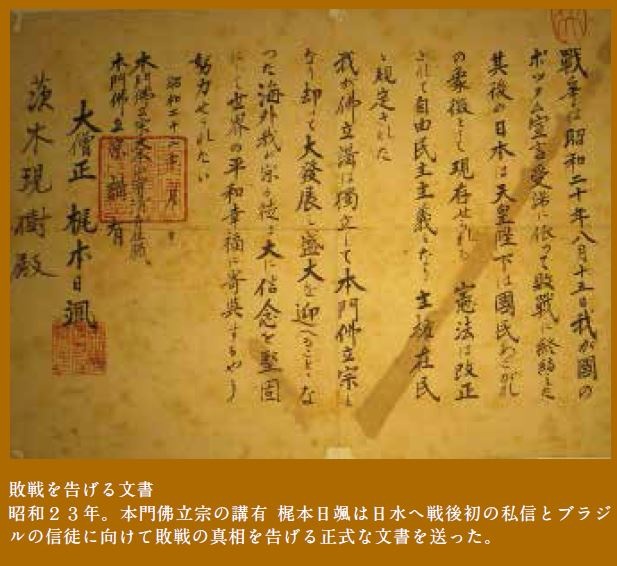 戦争は昭和二十年八月十五日我が国の
ポツダム宣言受諾に依って敗戦に終結した
其後の日本は天皇陛下は國民あこがれ
の象徴として現存せられ 憲法は改正
されて自由民主主義となり主権在民
と規定された
我が佛立講は獨立して本門佛立宗と
なり却って大發展と盛大を迎へることとな
った海外我が宗の徒よ大に信念を堅固
にして世界の平和幸福に寄與するやう
努力せられたい
昭和二十三年
本門佛立宗
本門佛立宗 講有
大僧正 梶本日颯
茨木現樹殿
敗戦を告げる文書
昭和２３年。本門佛立宗の講有 梶本日颯は日水へ戦後初の私信とブラジ
ルの信徒に向けて敗戦の真相を告げる正式な文書を送った。